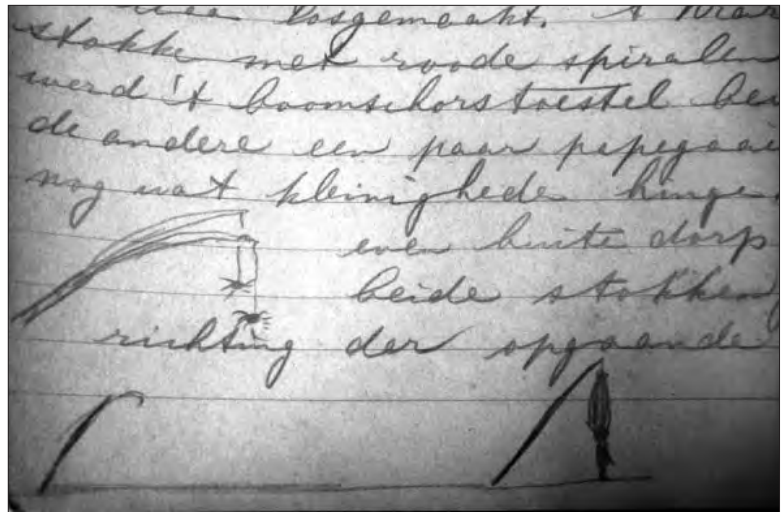 losgemaakt. 't
stokke met roode spiralen
werd 't boomschorstoestel be
de andere een paar papegaai
nog wat kleinighede hinge
even buite dorp
beide stokken
richting der opgaande